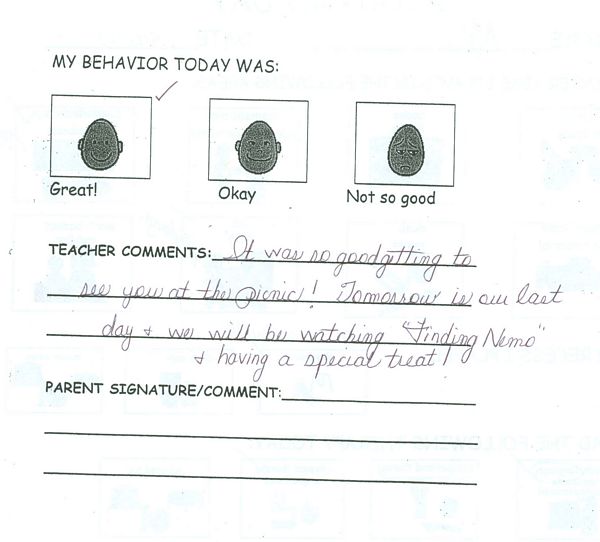 MY BEHAVIOR TODAY WAS:
Great! Okay Not so good
TEACHER COMMENTS: It was so good getting to
see you at the picnic! Tomorrow is our last
day + we will be watching "Finding Nemo"
+ having a special treat!
PARENT SIGNATURE/COMMENT: